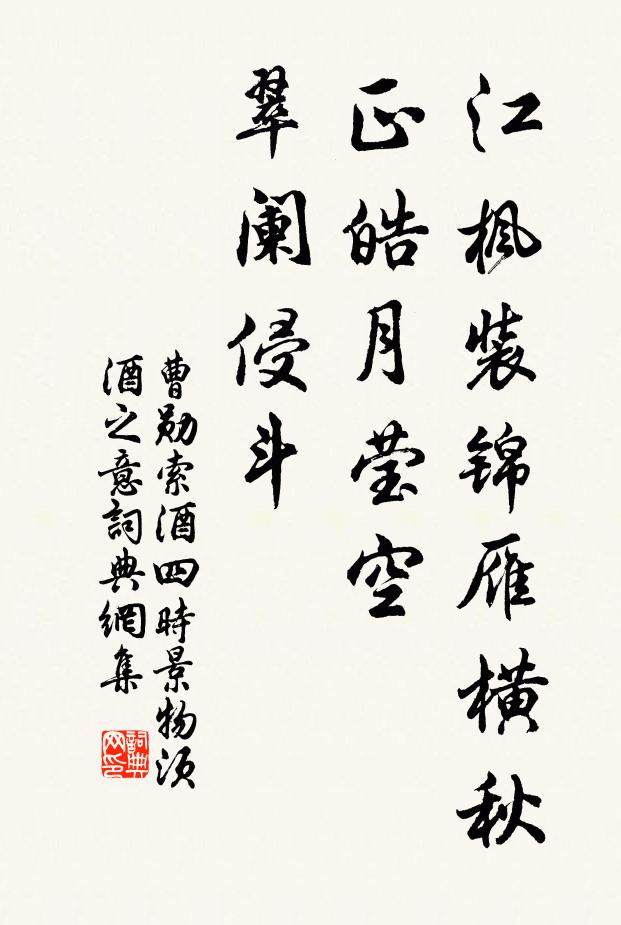 江枫装锦雁横秋
正皓月莹空
翠阑侵斗
曹勋索酒四時景物须
酒之意詞典網集
詞典网印